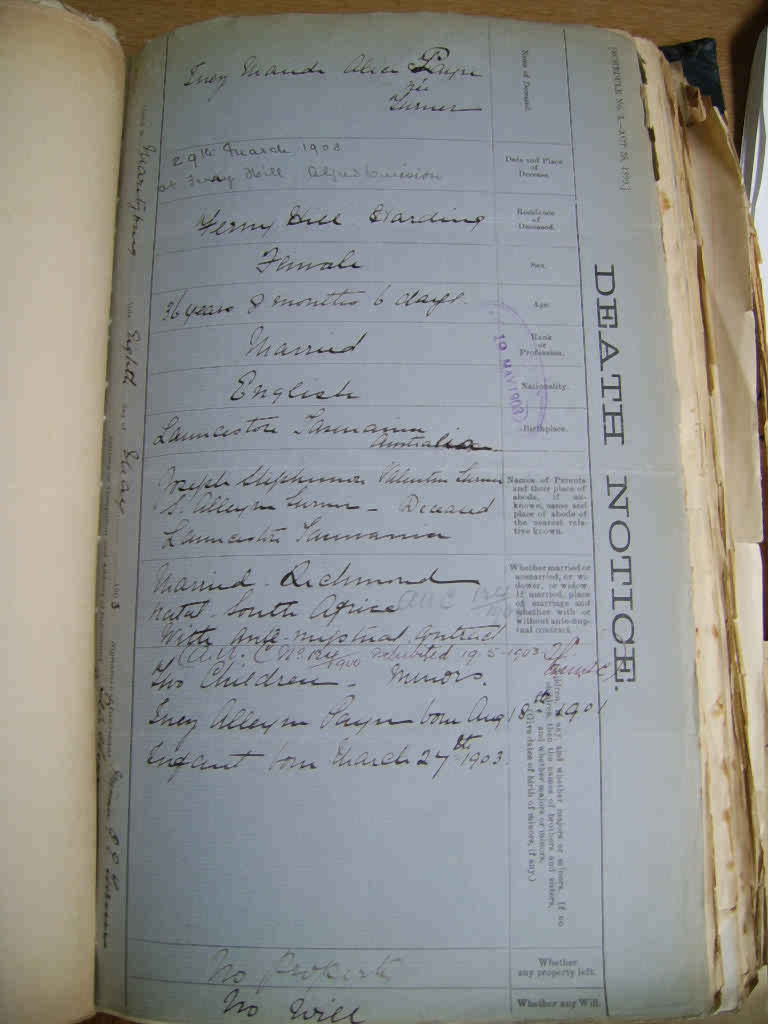 [SCHEDULE No. 1.—ACT 38, 1899.]
DEATH NOTICE.
Name of Deceased.
Lucy Maude Alice Payn
née
Turner
Date and Place of Decease.
29th March 1903
at Hill
Residence of Deceased.
Ferny Hill Harding
Sex.
Female
Age.
36 years 8 months 6 days.
Rank or Profession.
Married
19 MAY 1903
Nationality.
English
Birthplace.
Launceston Tasmania
Australia
Names of Parents and their place of abode, if unknown, name and place of abode of the nearest relative known.
Joseph Stephenson Valentine Turner
S. Alleyn Turner - Deceased
Launceston Tasmania
Whether married or unmarried, or widower, or widow. If married, place of marriage and whether with or without ante-nuptial contract.
Married - Richmond
Natal - South Africa
With Ante-nuptial Contract
(A.N.C. No. 124/1900 exhibited 19-5-1903
Children, if any, and whether majors or minors. If no children, then the names of brothers and sisters, and whether majors or minors. (Give dates of birth of minors, if any.)
Two Children - Minors.
Lucy Alleyn Payn born Aug 18th 1901
Infant born March 27th 1903.
Whether any property left.
No Property
Whether any Will.
No Will
Maritzburg
Eighth
day of
May
1903